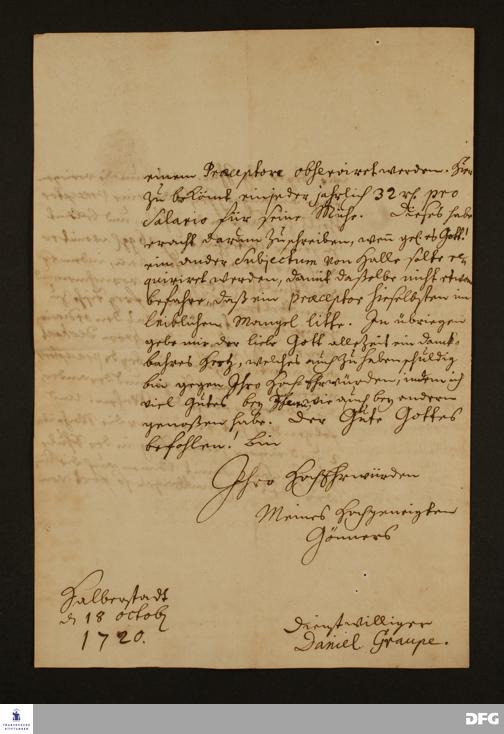 einem Præceptore observiret werden. Hier
zu bekömt ein jeder jährlich 32 rl. pro
Salario für seine Mühe. Dieses habe
eracht darum zu schreiben, wen gel. es Gott!
ein ander Subjectum von Halle solte re-
quiriret werden, damit dasselbe nicht etwan
befahre, daß ein Præceptor hieselbsten im
leiblichen Mangel litte. In übriegen
gebe mir der liebe Gott allezeit ein danck-
bahres Hertz, welches auch zu haben schuldig
bin gegen Ihro HochEhrwürden, indem ich
viel Gutes bey Ihnen, wie auch bey andern
genoßen habe. Der Güte Gottes
befohlen! bin
Ihro HochEhrwürden
Meines Hochgeneigten
Gönners
Halberstadt
d. 18 Octob.
1720.
Dienstwilliger
Daniel Graupe.
FRANCKESCHE
STIFTUNGEN
DFG